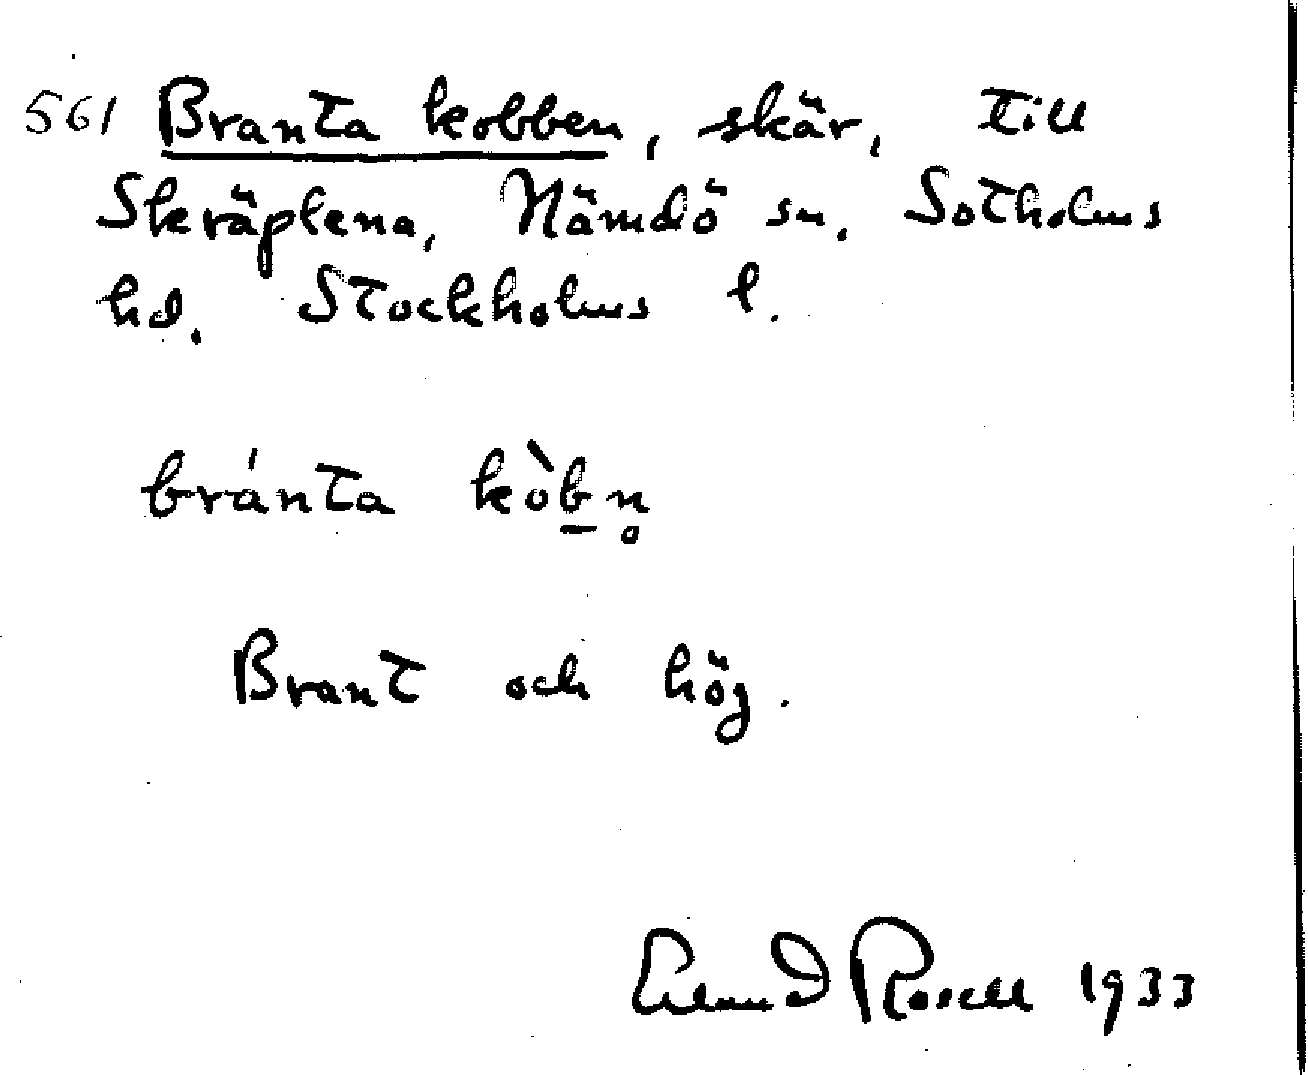 561 Branta kobben, skär, till
Skräplena, Nämdö sn. Sotholms
hd. Stockholms l.
bránta kòb̲n̥
Brant och hög.
Erland Rosell 1933